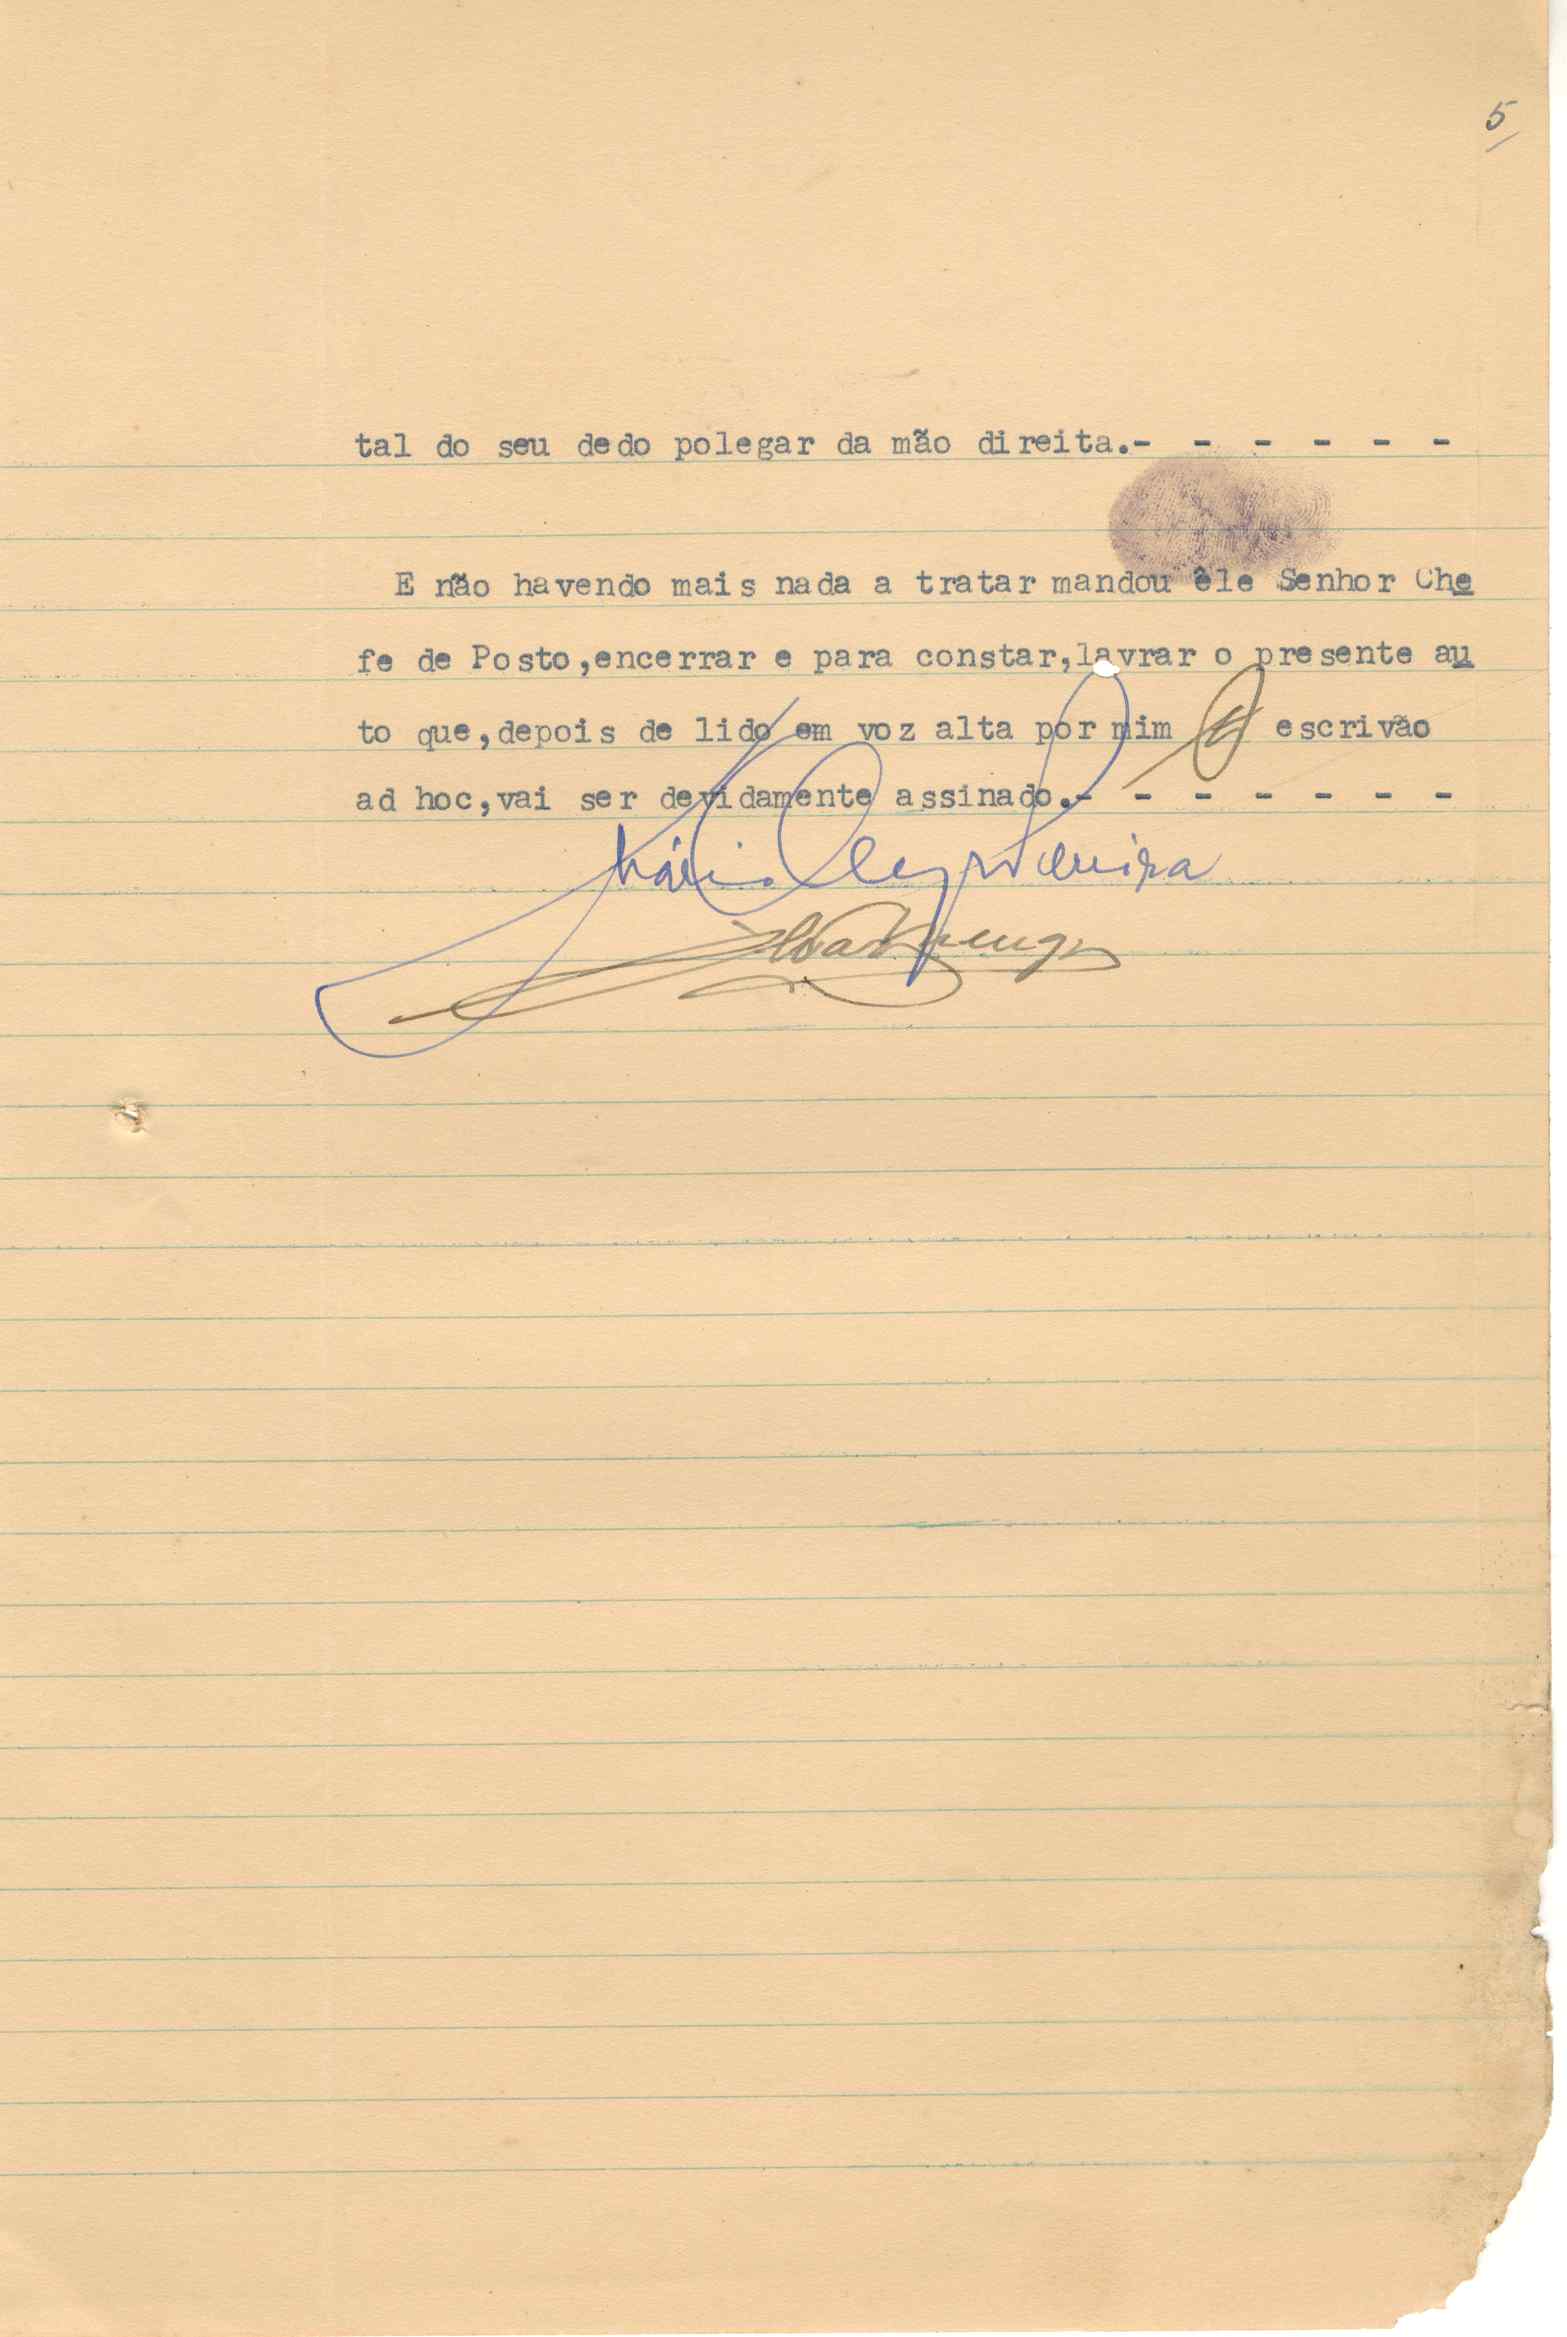 5
tal do seu dedo polegar da mão direita.- - - - - -
E não havendo mais nada a tratar mandou êle Senhor Che
fe de Posto,encerrar e para constar,lavrar o presente au
to que,depois de lido em voz alta por mim escrivão
ad hoc,vai ser devidamente assinado.- - - - - - -